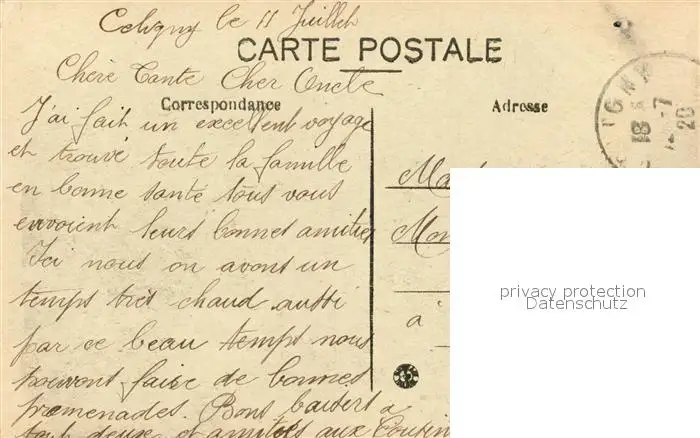 Coligny le 11 Juillet
CARTE POSTALE
Chère Tante Cher Oncle
Correspondance
Adresse
J'ai fait un excellent voyage
et trouvé toute la famille
en bonne santé tous vous
envoient leurs bonnes amitiés
Ici nous on avons un
temps très chaud aussi
par ce beau temps nous
pouvons faire de bonnes
promenades. Bons baisers a
tout deux et amitiés aux Cousin
à
IGN
18
-7
20
privacy protection
Datenschutz